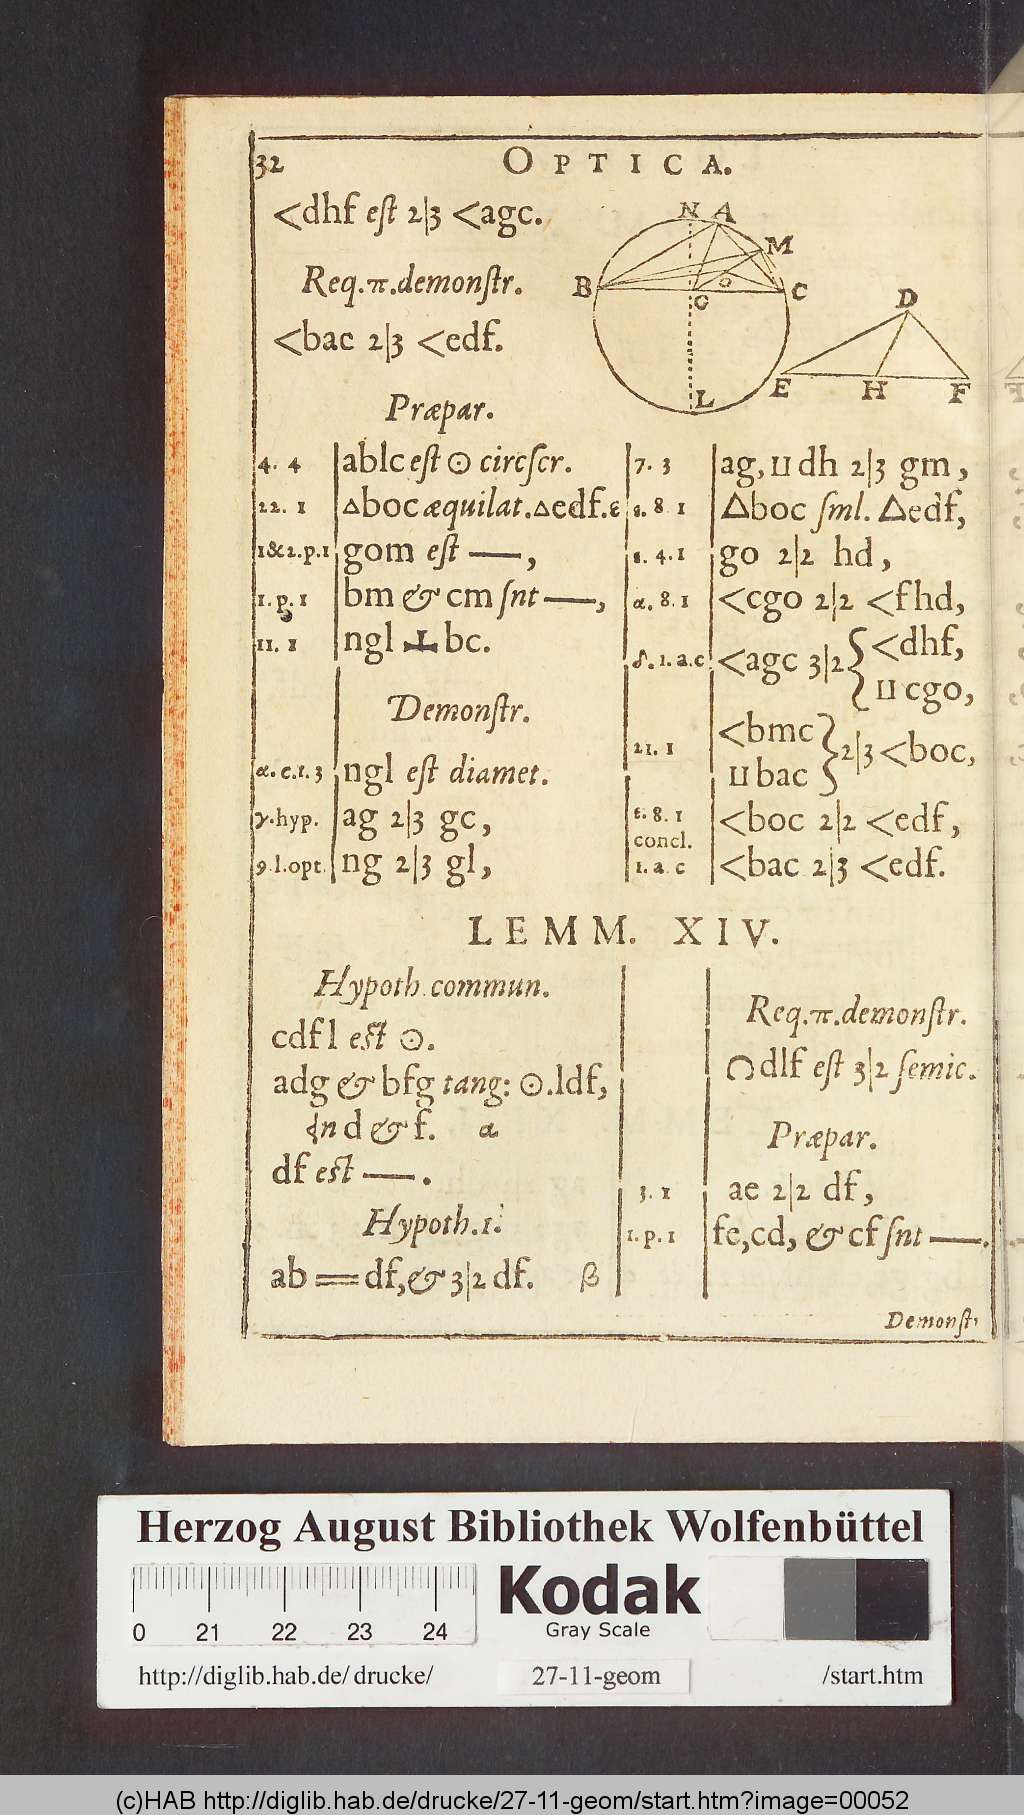 32
OPTICA.
<dhf est 2|3 <agc.
Req.π.demonstr.
<bac 2|3 <edf.
Præpar.
N A
M
B
G
o
C
D
L
E H F
4. 4 | ablc est ⊙ circscr.
22. 1 | △boc æquilat. △edf. ε
1&2.p.1 | gom est —,
1.p.1 | bm & cm snt —,
11. 1 | ngl ⊥ bc.
Demonstr.
α.c.1.3 | ngl est diamet.
γ.hyp. | ag 2|3 gc,
9.l.opt. | ng 2|3 gl,
7. 3 | ag, ⊔ dh 2|3 gm,
ε. 8. 1 | △boc sml. △edf,
ε. 4. 1 | go 2|2 hd,
α. 8. 1 | <cgo 2|2 <fhd,
δ. 1. a.c | <agc 3|2 { <dhf,
⊔ cgo,
21. 1 | <bmc
⊔ bac } 2|3 <boc,
ε. 8. 1 | <boc 2|2 <edf,
concl.
1. a. c | <bac 2|3 <edf.
LEMM. XIV.
Hypoth. commun.
cdfl est ⊙.
adg & bfg tang: ⊙.ldf,
d & f. α
df est —.
Hypoth.1.
ab == df, & 3|2 df. β
Req.π.demonstr.
∩dlf est 3|2 semic.
Præpar.
3. 1 | ae 2|2 df,
1. p. 1 | fe, cd, & cf snt —.
Demonstr
Herzog August Bibliothek Wolfenbüttel
0 21 22 23 24
Kodak
Gray Scale
http://diglib.hab.de/drucke/ 27-11-geom /start.htm
(c)HAB http://diglib.hab.de/drucke/27-11-geom/start.htm?image=00052